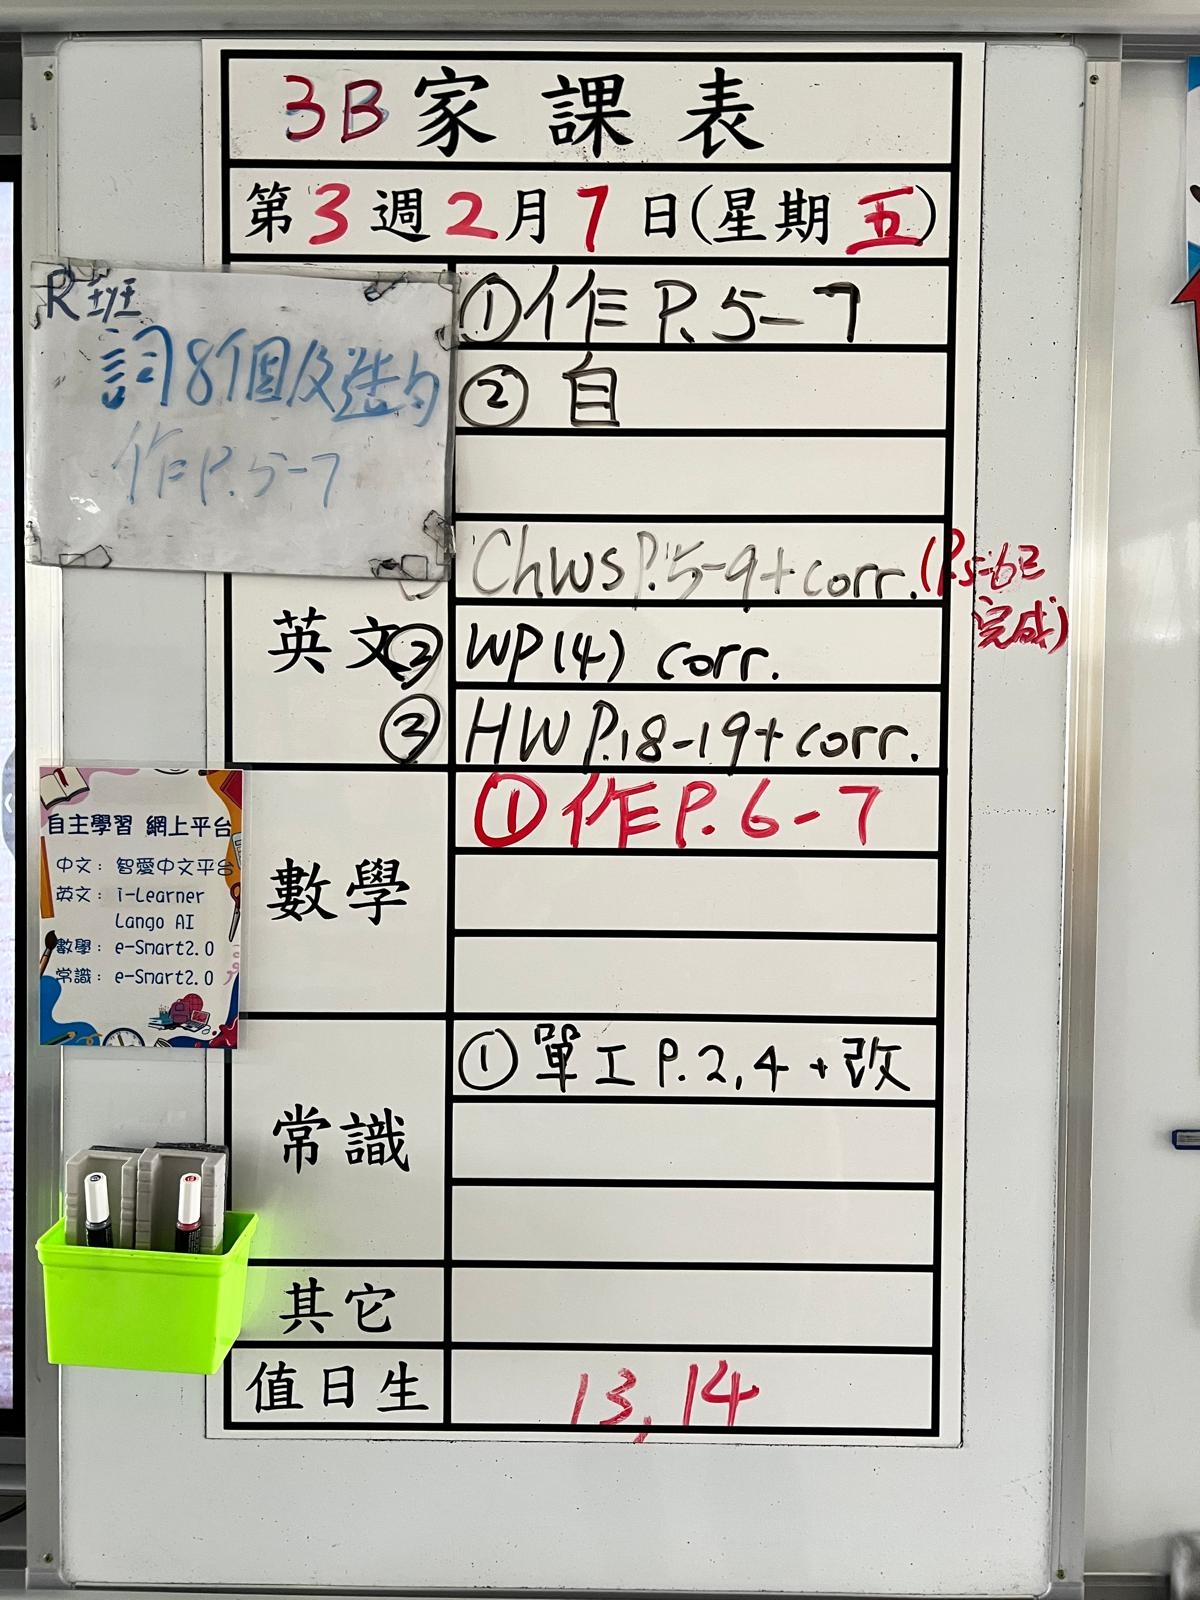 3B家課表
第3週2月7日(星期五)
R班
詞8個及造句
作P.5-7
①作P.5-7
②自
英文
ChWSP.5-9+corr.(P.5-6已完成)
②WP(4) corr.
③HWP.18-19+corr.
數學
①作P.6-7
常識
①單工P.2,4+改
其它
值日生
13,14
自主學習 網上平台
中文：智愛中文平台
英文：i-Learner
Lango AI
數學：e-Smart2.0
常識：e-Smart2.0